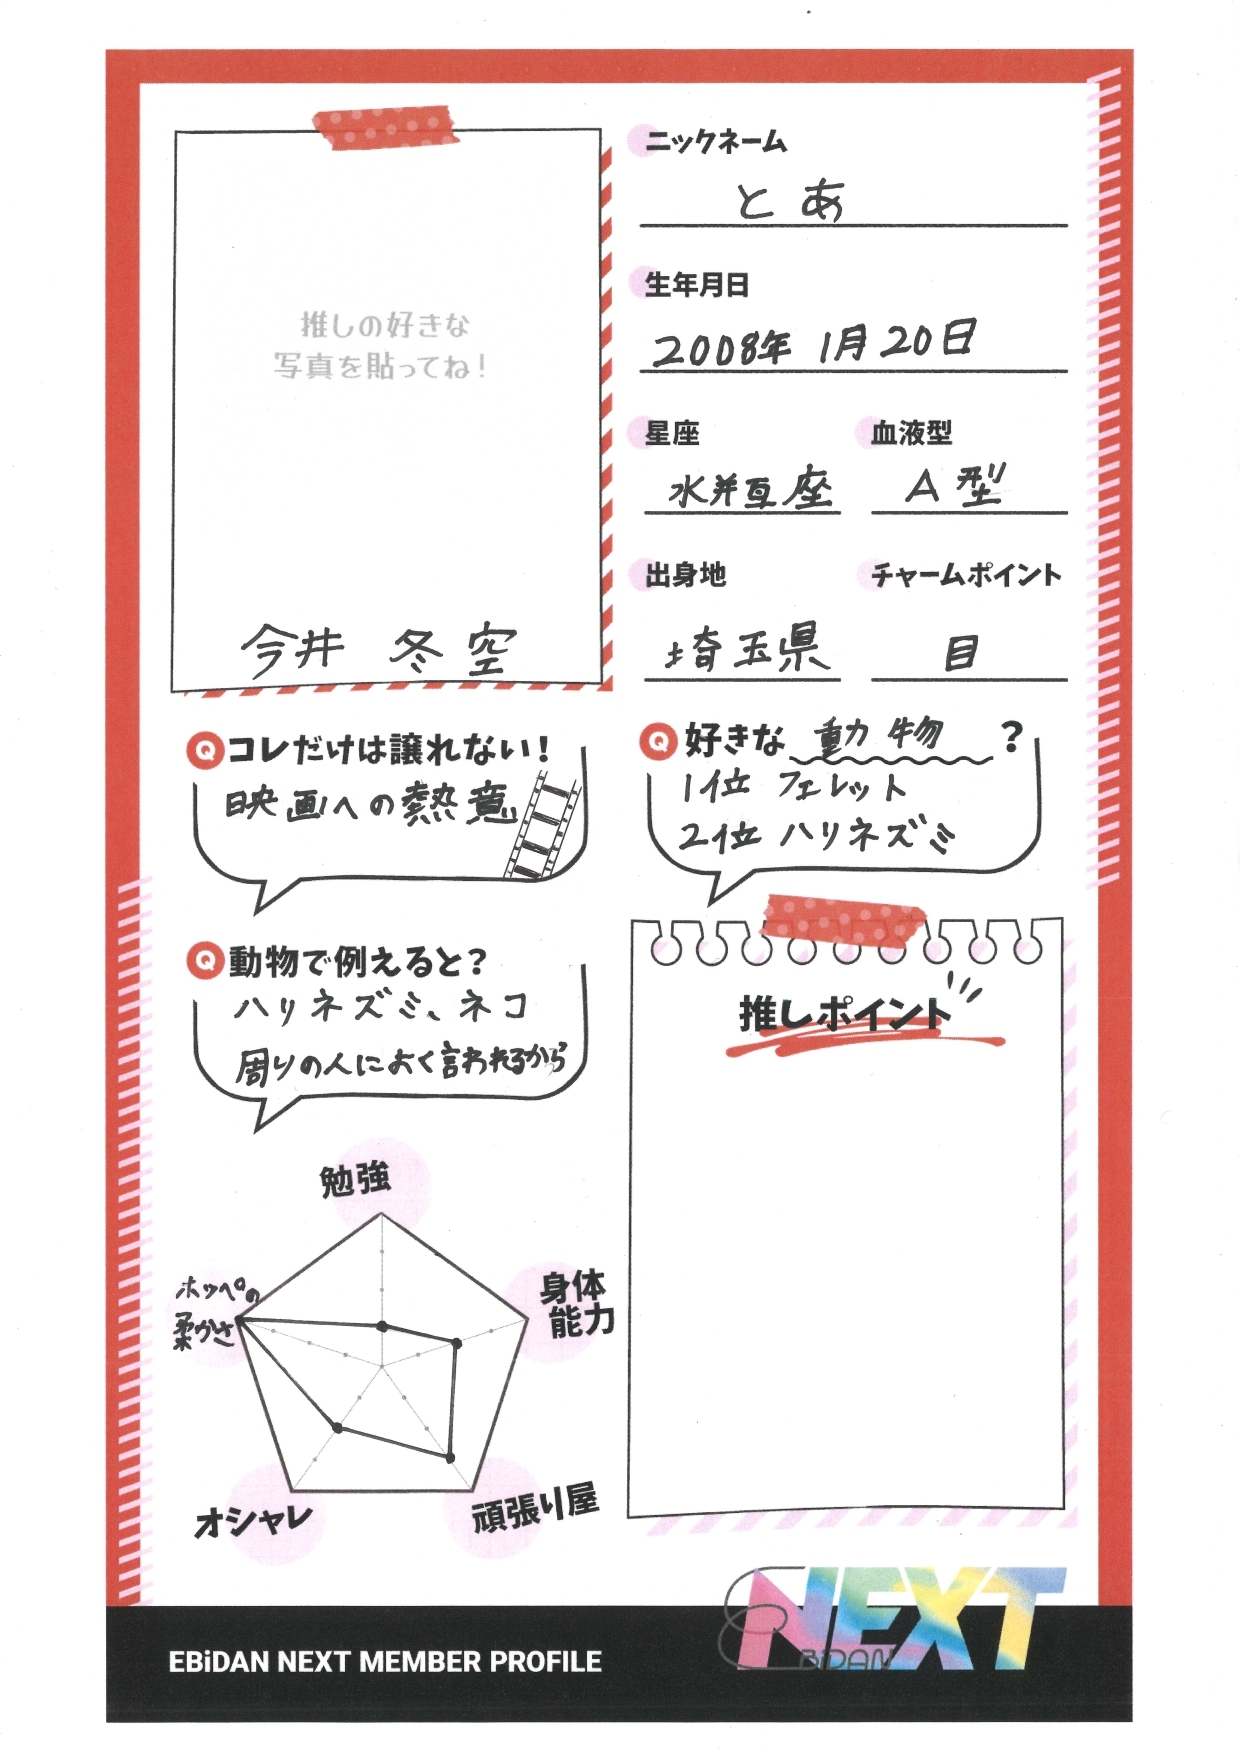 ニックネーム
とあ
生年月日
2008年 1月20日
星座
水井互座
血液型
A型
出身地
埼玉県
チャームポイント
目
推しの好きな
写真を貼ってね!
今井 冬空
Q コレだけは譲れない!
映画への熱意
Q 好きな 動物 ?
1位 フェレット
2位 ハリネズミ
Q 動物で例えると?
ハリネズミ、ネコ
周りの人によく言われるから
推しポイント
勉強
身体
能力
頑張り屋
オシャレ
ホッペの
柔かさ
EBiDAN NEXT MEMBER PROFILE
NEXT
EBiDAN